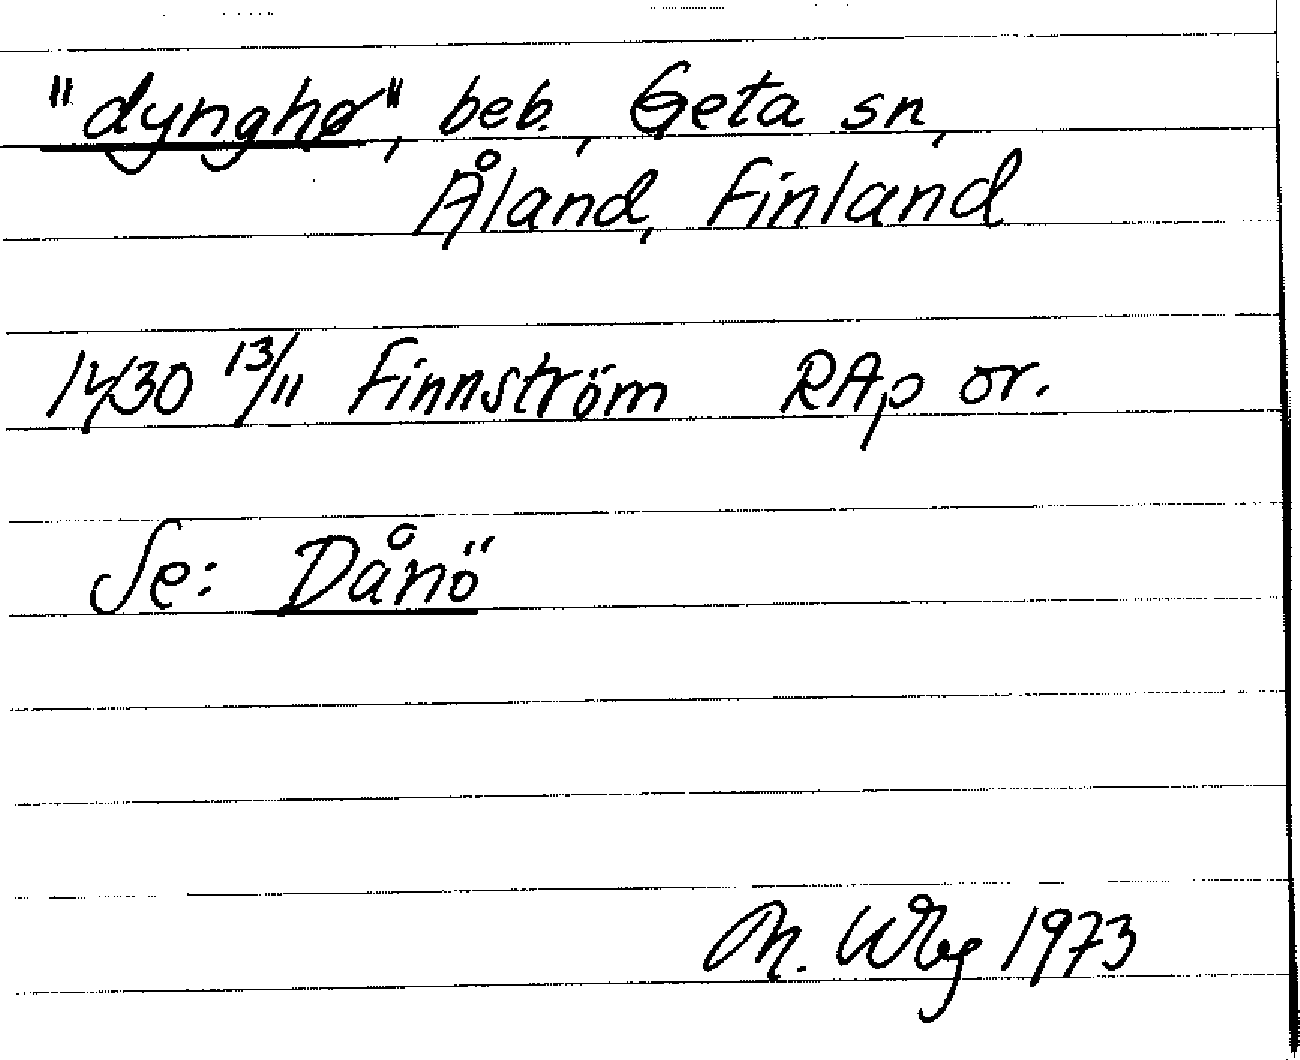 "dynghø", beb., Geta sn,
Åland, Finland
1430 13/11 Finnström RAp or.
Se: Dånö
M. Wbg 1973